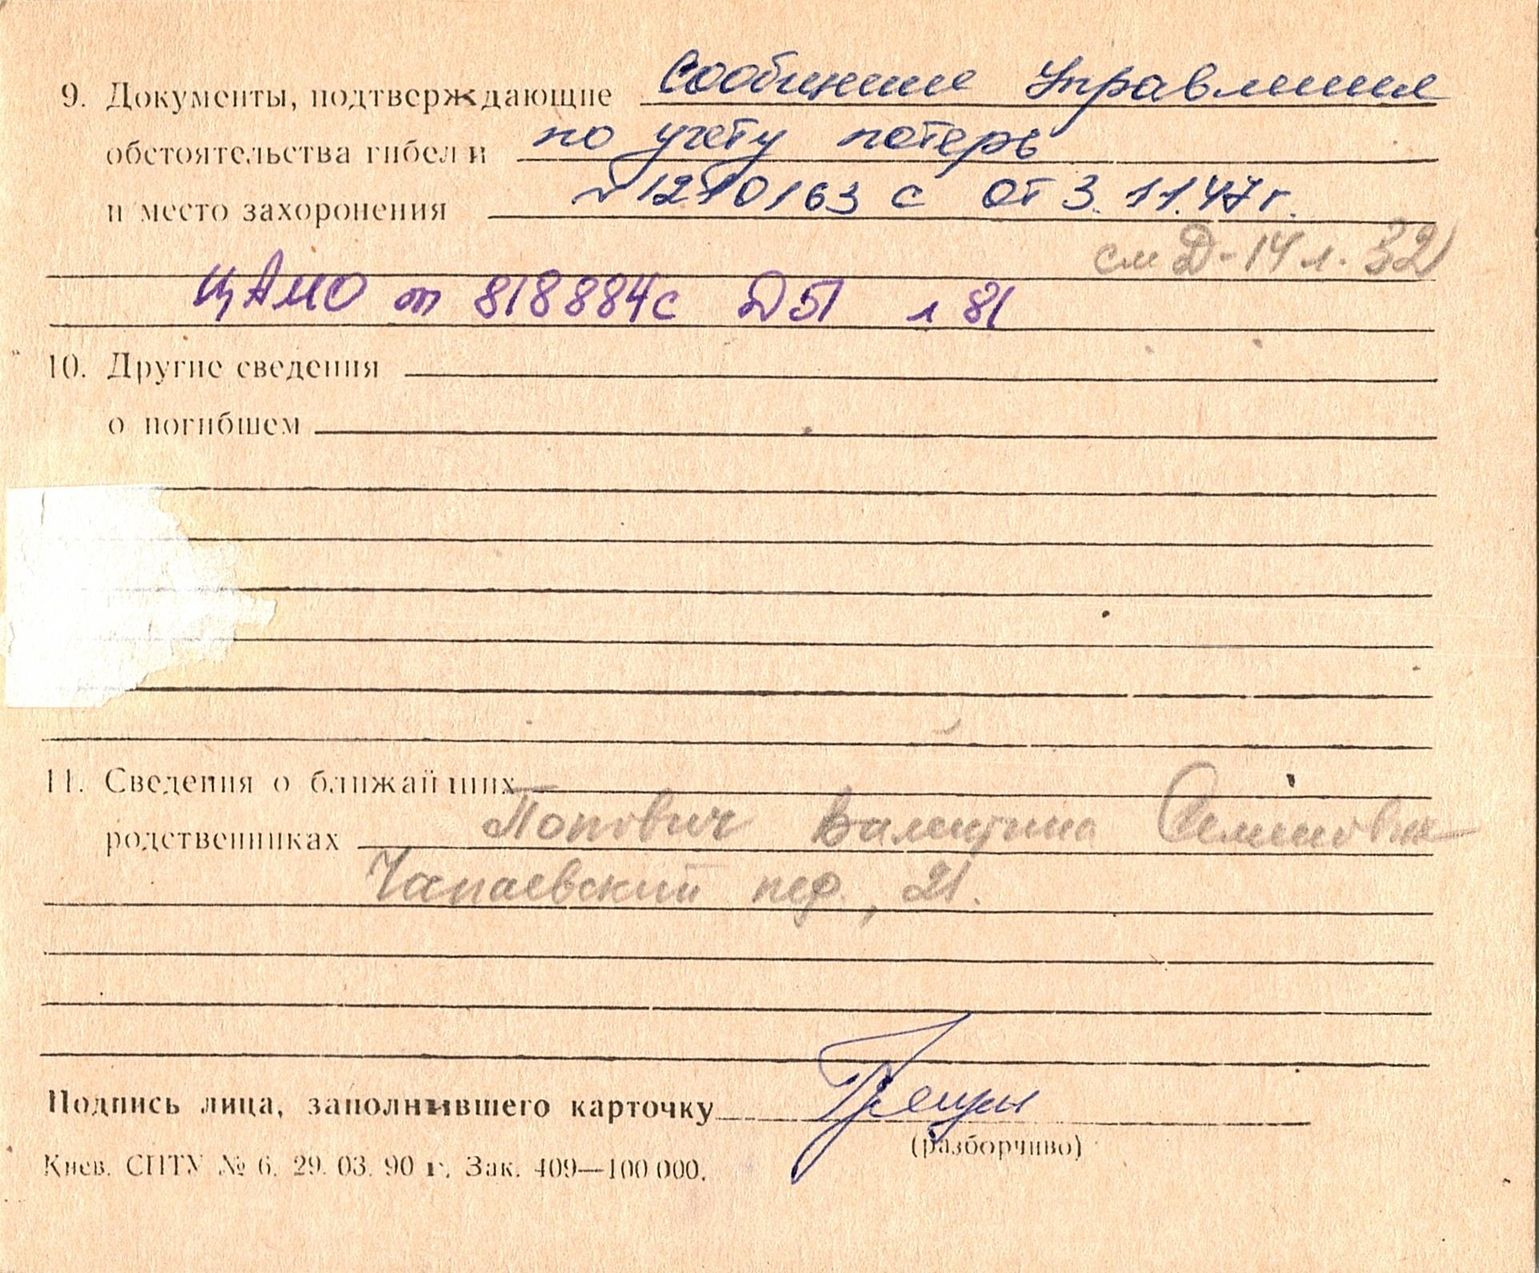 9. Документы, подтверждающие Сообщение Управления
обстоятельства гибели по учету потерь
и место захоронения № 1210163 с от 3.11.47 г.
см Д-14 л. 32
ЦАМО оп 818884с Д51 л 81
10. Другие сведения
о погибшем
11. Сведения о ближайших
родственниках Попович Валентина Семеновна
Чапаевский пер., 21.
Подпись лица, заполнившего карточку
(разборчиво)
Киев. СПТУ № 6. 29. 03. 90 г. Зак. 409—100 000.